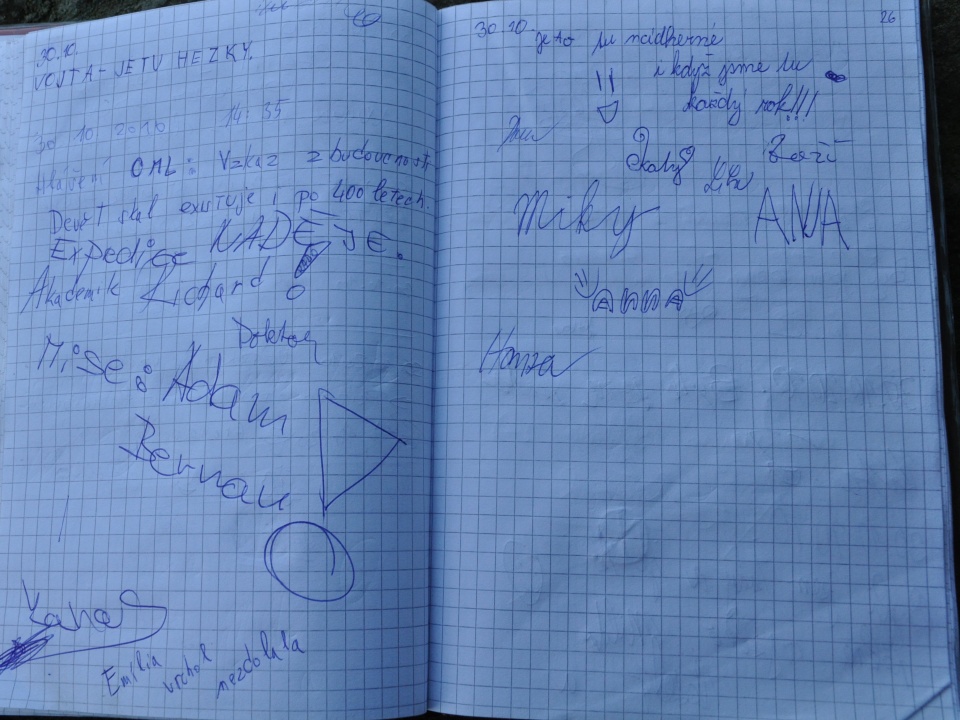 30.10.
VOJTA-JETU HEZKY.
30 10 2016 14:35
Hlášení OML: Vzkaz z budoucnosti
Devět skal existuje i po 400 letech.
Expedice NADĚJE.
Akademik Richard
Doktor
Mise: Adam
Bernau
Emília
vrchol
nezdolala
26
30.10. je to tu nádherné
i když jsme tu
každý rok!!!
Miky
ANA
ANNA
Honza